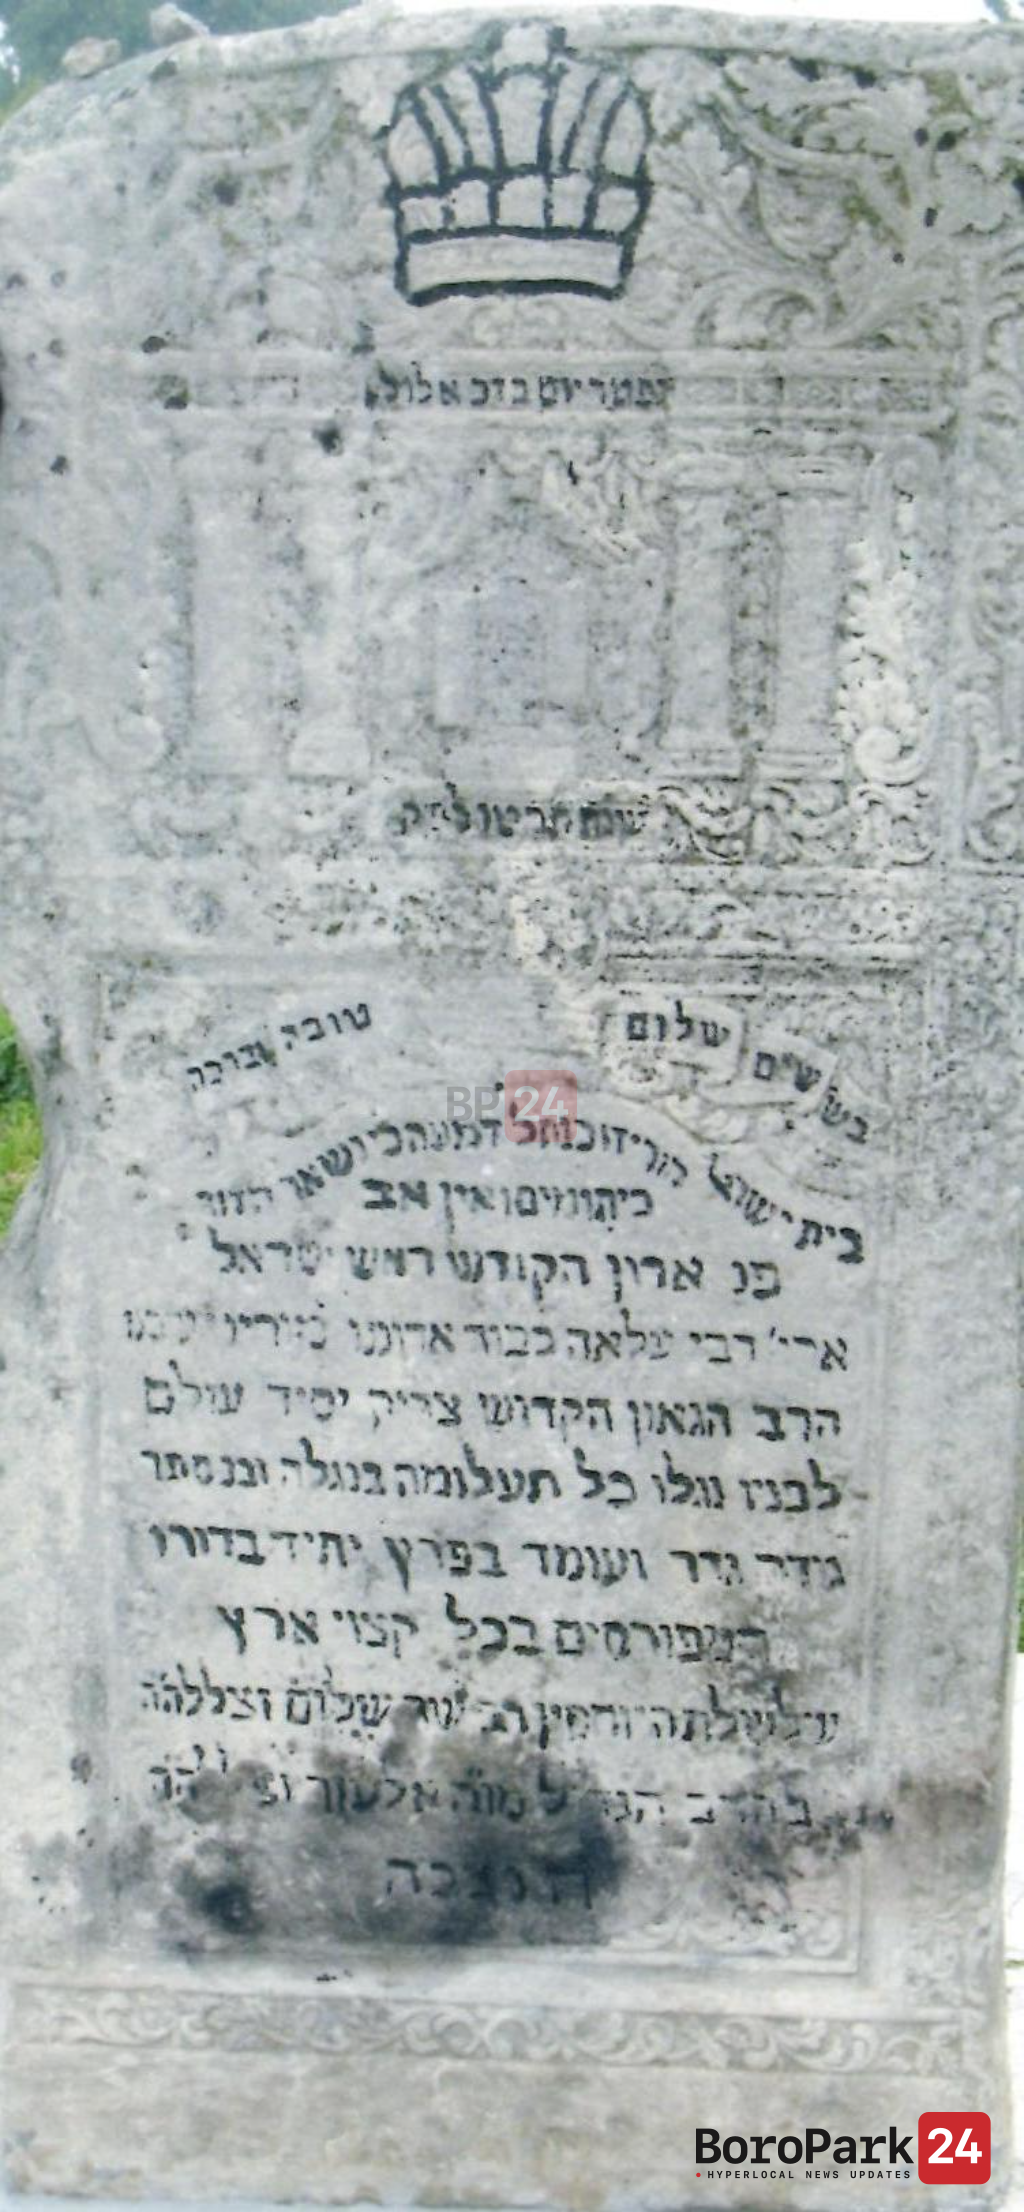 נפטר יום ב דכ אלול
שנת תרטו ל
בש שים שלום
טובה וברכה
בית ישראל הורידו כנחל דמעה כי
כיתומים ואין אב
פנ ארון הקודש ראש ישראל
ארי' דבי עלאה כבוד אדוננו
הרב הגאון הקדוש צדיק יסיד עולם
לבניו נגלו כל תעלומה בנגלה ובנסתר
גודר גדר ועומד בפרץ יחיד בדורו
המפורסים בכל קצוי ארץ
שלשלתה שר שלום זצללהה
בהרב אלעזר
BP24
BoroPark 24
HYPERLOCAL NEWS UPDATES